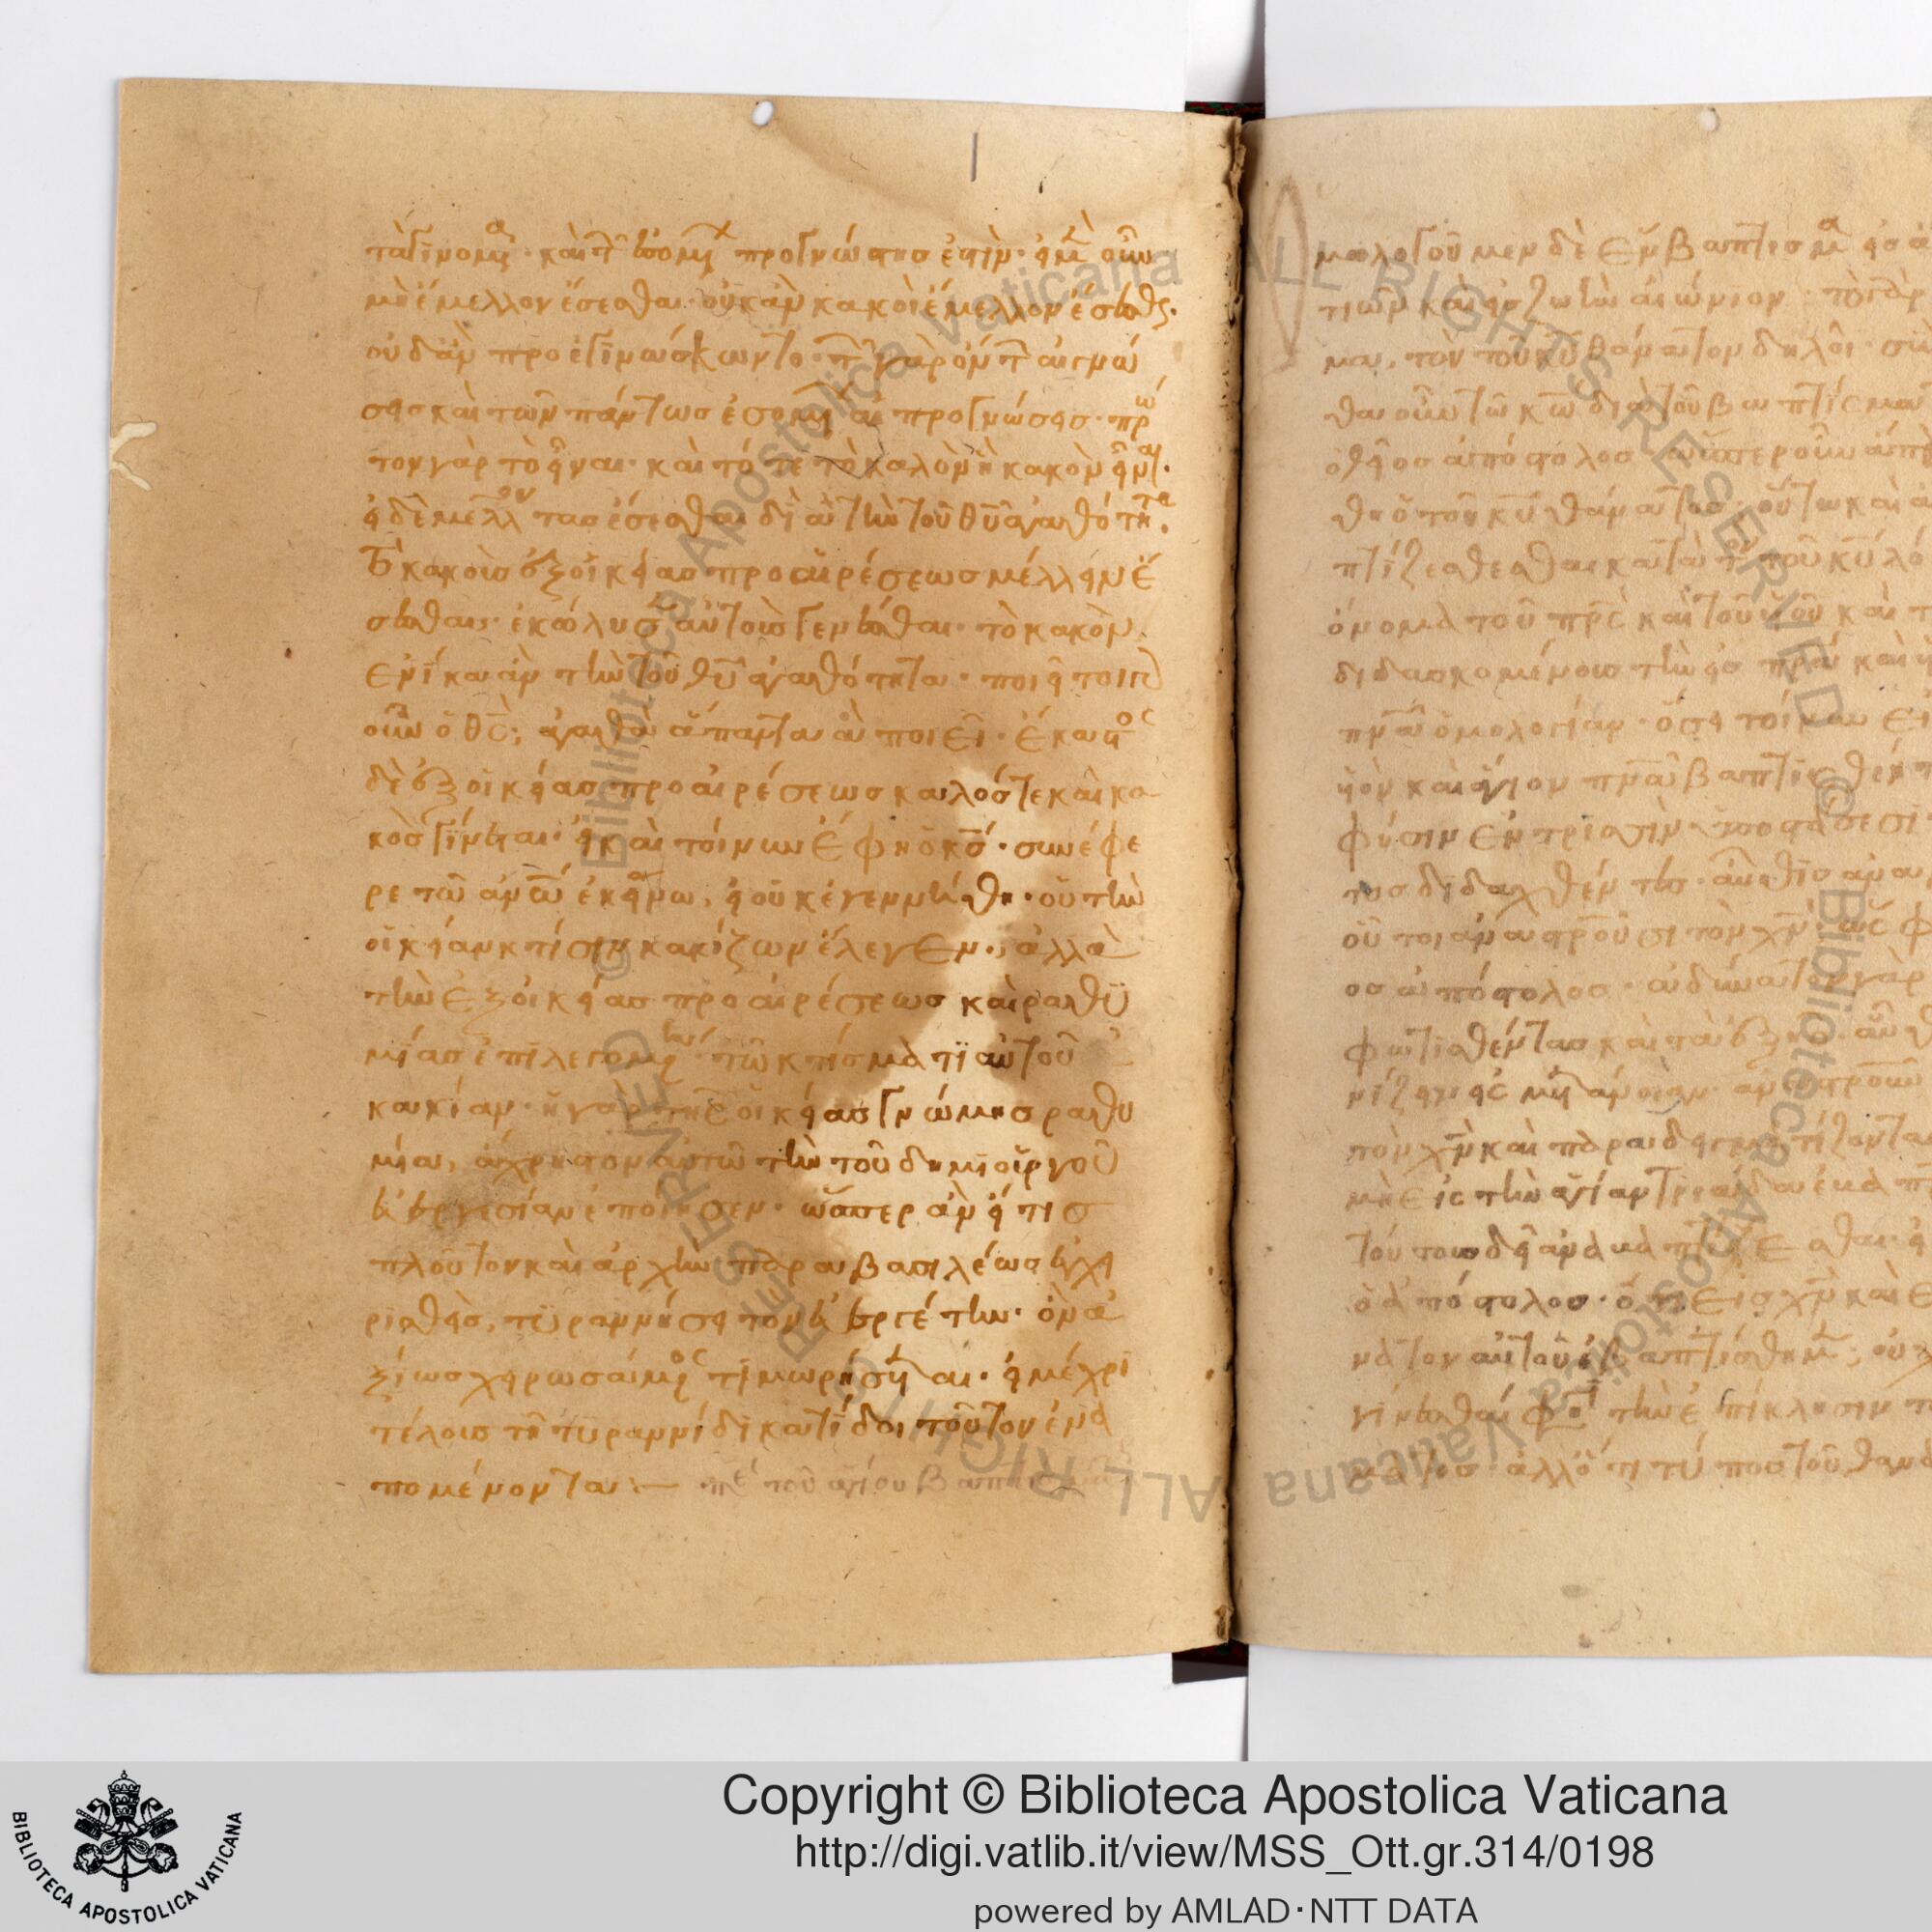 τὰ γινόμενα· καὶ τῶν ἐσομένων προγνώστης ἐστίν· εἰ μὲν οὖν
μὴ ἔμελλον ἔσεσθαι· οὐκ ἂν κακοὶ ἔμελλον ἔσεσθαι·
οὐδ' ἂν προεγινώσκωντο· τῶν γὰρ ὄντων αἱ γνώ
σεις καὶ τῶν πάντως ἐσομένων αἱ προγνώσεις· πρῶ
τον γὰρ τὸ εἶναι· καὶ τότε τὸ καλὸν ἢ κακὸν εἶναι·
εἰ δὲ μέλλοντας ἔσεσθαι διὰ τὴν τοῦ θυ ἀγαθότητα·
τὸ κακοὺς ἐξ οἰκείας προαιρέσεως μέλλειν ἔ
σεσθαι· ἐκώλυσεν αὐτοὺς γενέσθαι· τὸ κακὸν
ἐνίκα ἂν τὴν τοῦ θυ ἀγαθότητα· ποιεῖ τοιγ
οὖν ὁ θς, ἀγαθὰ ἅπαντα ἃ ποιεῖ· ἕκαστος
δὲ ἐξ οἰκείας προαιρέσεως καλός τε καὶ κα
κὸς γίνεται· εἰ καὶ τοίνυν ἔφη ὁ κς· συνέφε
ρε τῶ ἀνω ἐκείνω, εἰ οὐκ ἐγεννήθη· οὐ τὴν
οἰκείαν κτίσιν κακίζων ἔλεγεν· ἀλλὰ
τὴν ἐξ οἰκείας προαιρέσεως καὶ ραθυ
μίας ἐπιγενομένην τῶ κτίσματι αὐτοῦ
κακίαν· ἡ γὰρ τῆς οἰκείας γνώμης ραθυ
μία, ἄχρηστον αὐτῶ τὴν τοῦ δημιουργοῦ
εὐεργεσίαν ἐποίησεν· ὥσπερ ἂν εἴ τις
πλοῦτον καὶ ἀρχὴν παρὰ βασιλέως ἐγχει
ρισθεὶς, τυραννήσει τὸν εὐεργέτην· ὃν ἀ
ξίως χειρωσάμενος τιμωρήσεται· εἰ μέχρι
τέλους τῆ τυραννίδι κατίδοι τοῦτον ἐνα
πομένοντα:— περὶ τοῦ ἁγίου βαπτίσματος
μολογοῦμεν δὲ ἓν βάπτισμα εἰς ἄ
τιῶν καὶ εἰς ζωὴν αἰώνιον· τὸ γὰρ
μα, τὸν τοῦ κυ θάνατον δηλοῖ· συ
θα οὖν τῶ κω διὰ τοῦ βαπτίσμα
ὁ θεῖος ἀπόστολος· ὥσπερ οὖν ἁπ
θη ὁ τοῦ κυ θάνατος· οὕτω καὶ
πτίζεσθε
ὄνομα τοῦ πρς καὶ τοῦ υἱοῦ καὶ τ
διδασκομένους τὴν εἰς πρα καὶ
πνα ὁμολογίαν· ὅσοι τοίνυν εἰ
υἱὸν καὶ ἅγιον πνα βαπτισθέν
φύσιν ἐν τρισὶν ὑποστάσεσι
διδαχθέντες· αὖθις ἀνα
οὗτοι ἀνασταυροῦσι τὸν χν· ὥς φ
ος ἀπόστολος· ἀδύνατον γὰρ
φωτισθέντας καὶ τὰ ἑξῆς· αὖ
νίζειν εἰς μετάνοιαν· ἀνασταυροῦν
τὸν χν καὶ παραδειγματίζοντα
μὴ εἰς τὴν ἁγίαν τριάδα ἐβαπ
τούτους δεῖ ἀναβαπτίζεσθαι· εἰ
ὁ ἀπόστολος· ὅτι εἰς χν καὶ ε
νατον αὐτοῦ ἐβαπτίσθημεν, οὐ
γίνεσθαί φησι τὴν ἐπίκλησιν τ
ματος· ἀλλ' ὅτι τύπος τοῦ θανά
Copyright © Biblioteca Apostolica Vaticana
http://digi.vatlib.it/view/MSS_Ott.gr.314/0198
powered by AMLAD·NTT DATA
BIBLIOTECA APOSTOLICA VATICANA